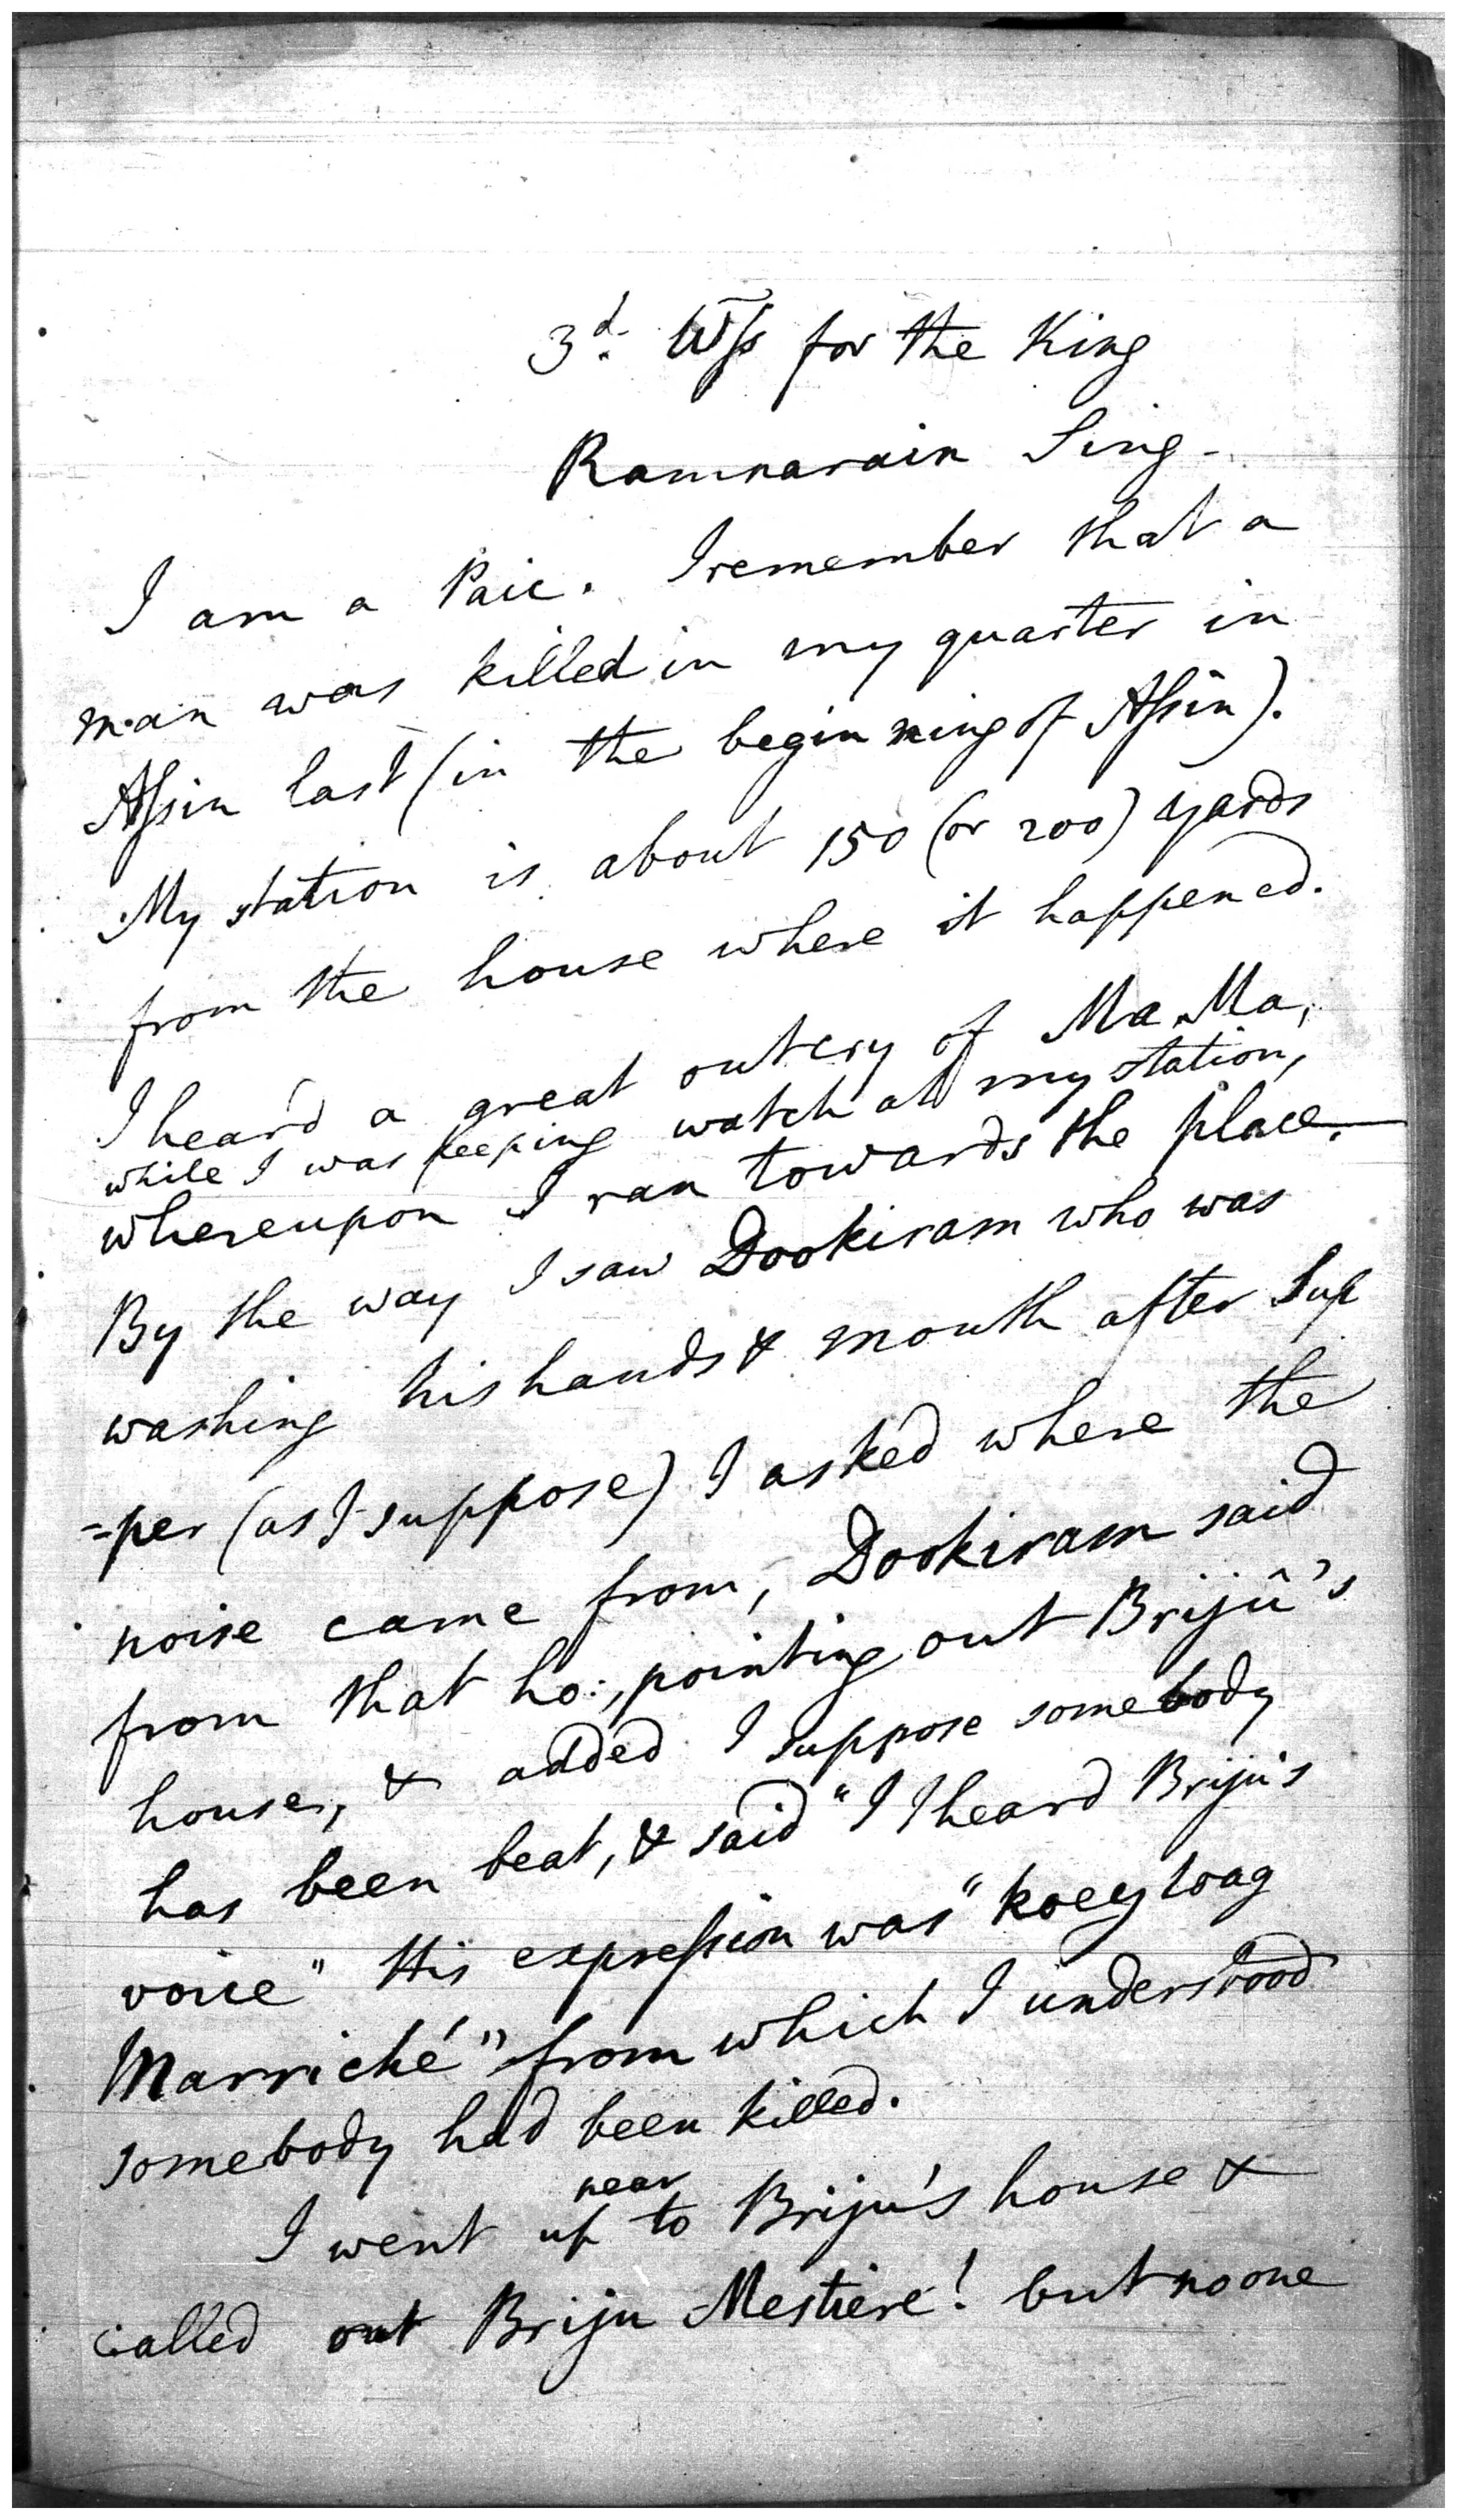 3d. Wss for the King
Ramnarain Sing -
I am a Paic. I remember that a
man was killed in my quarter in
Assin last (in the beginning of Assin).
My station is about 150 (or 200) yards
from the house where it happened.
I heard a great outcry of Ma Ma,
while I was keeping watch at my station,
whereupon I ran towards the place.
By the way I saw Dookiram who was
washing his hands & mouth after Sup
=per (as I suppose) I asked where the
noise came from, Dookiram said
from that ho:, pointing out Brijû's
house, & added I suppose somebody
has been beat, & said "I heard Briju's
voice" His expression was "koey loag
Marriché" from which I understood
somebody had been killed.
near
I went up to Briju's house &
called out Briju Mestiere! but no one